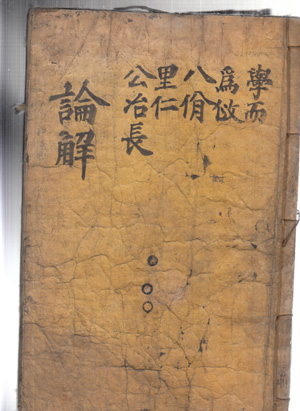 學而
爲政
八佾
里仁
公冶長
論解